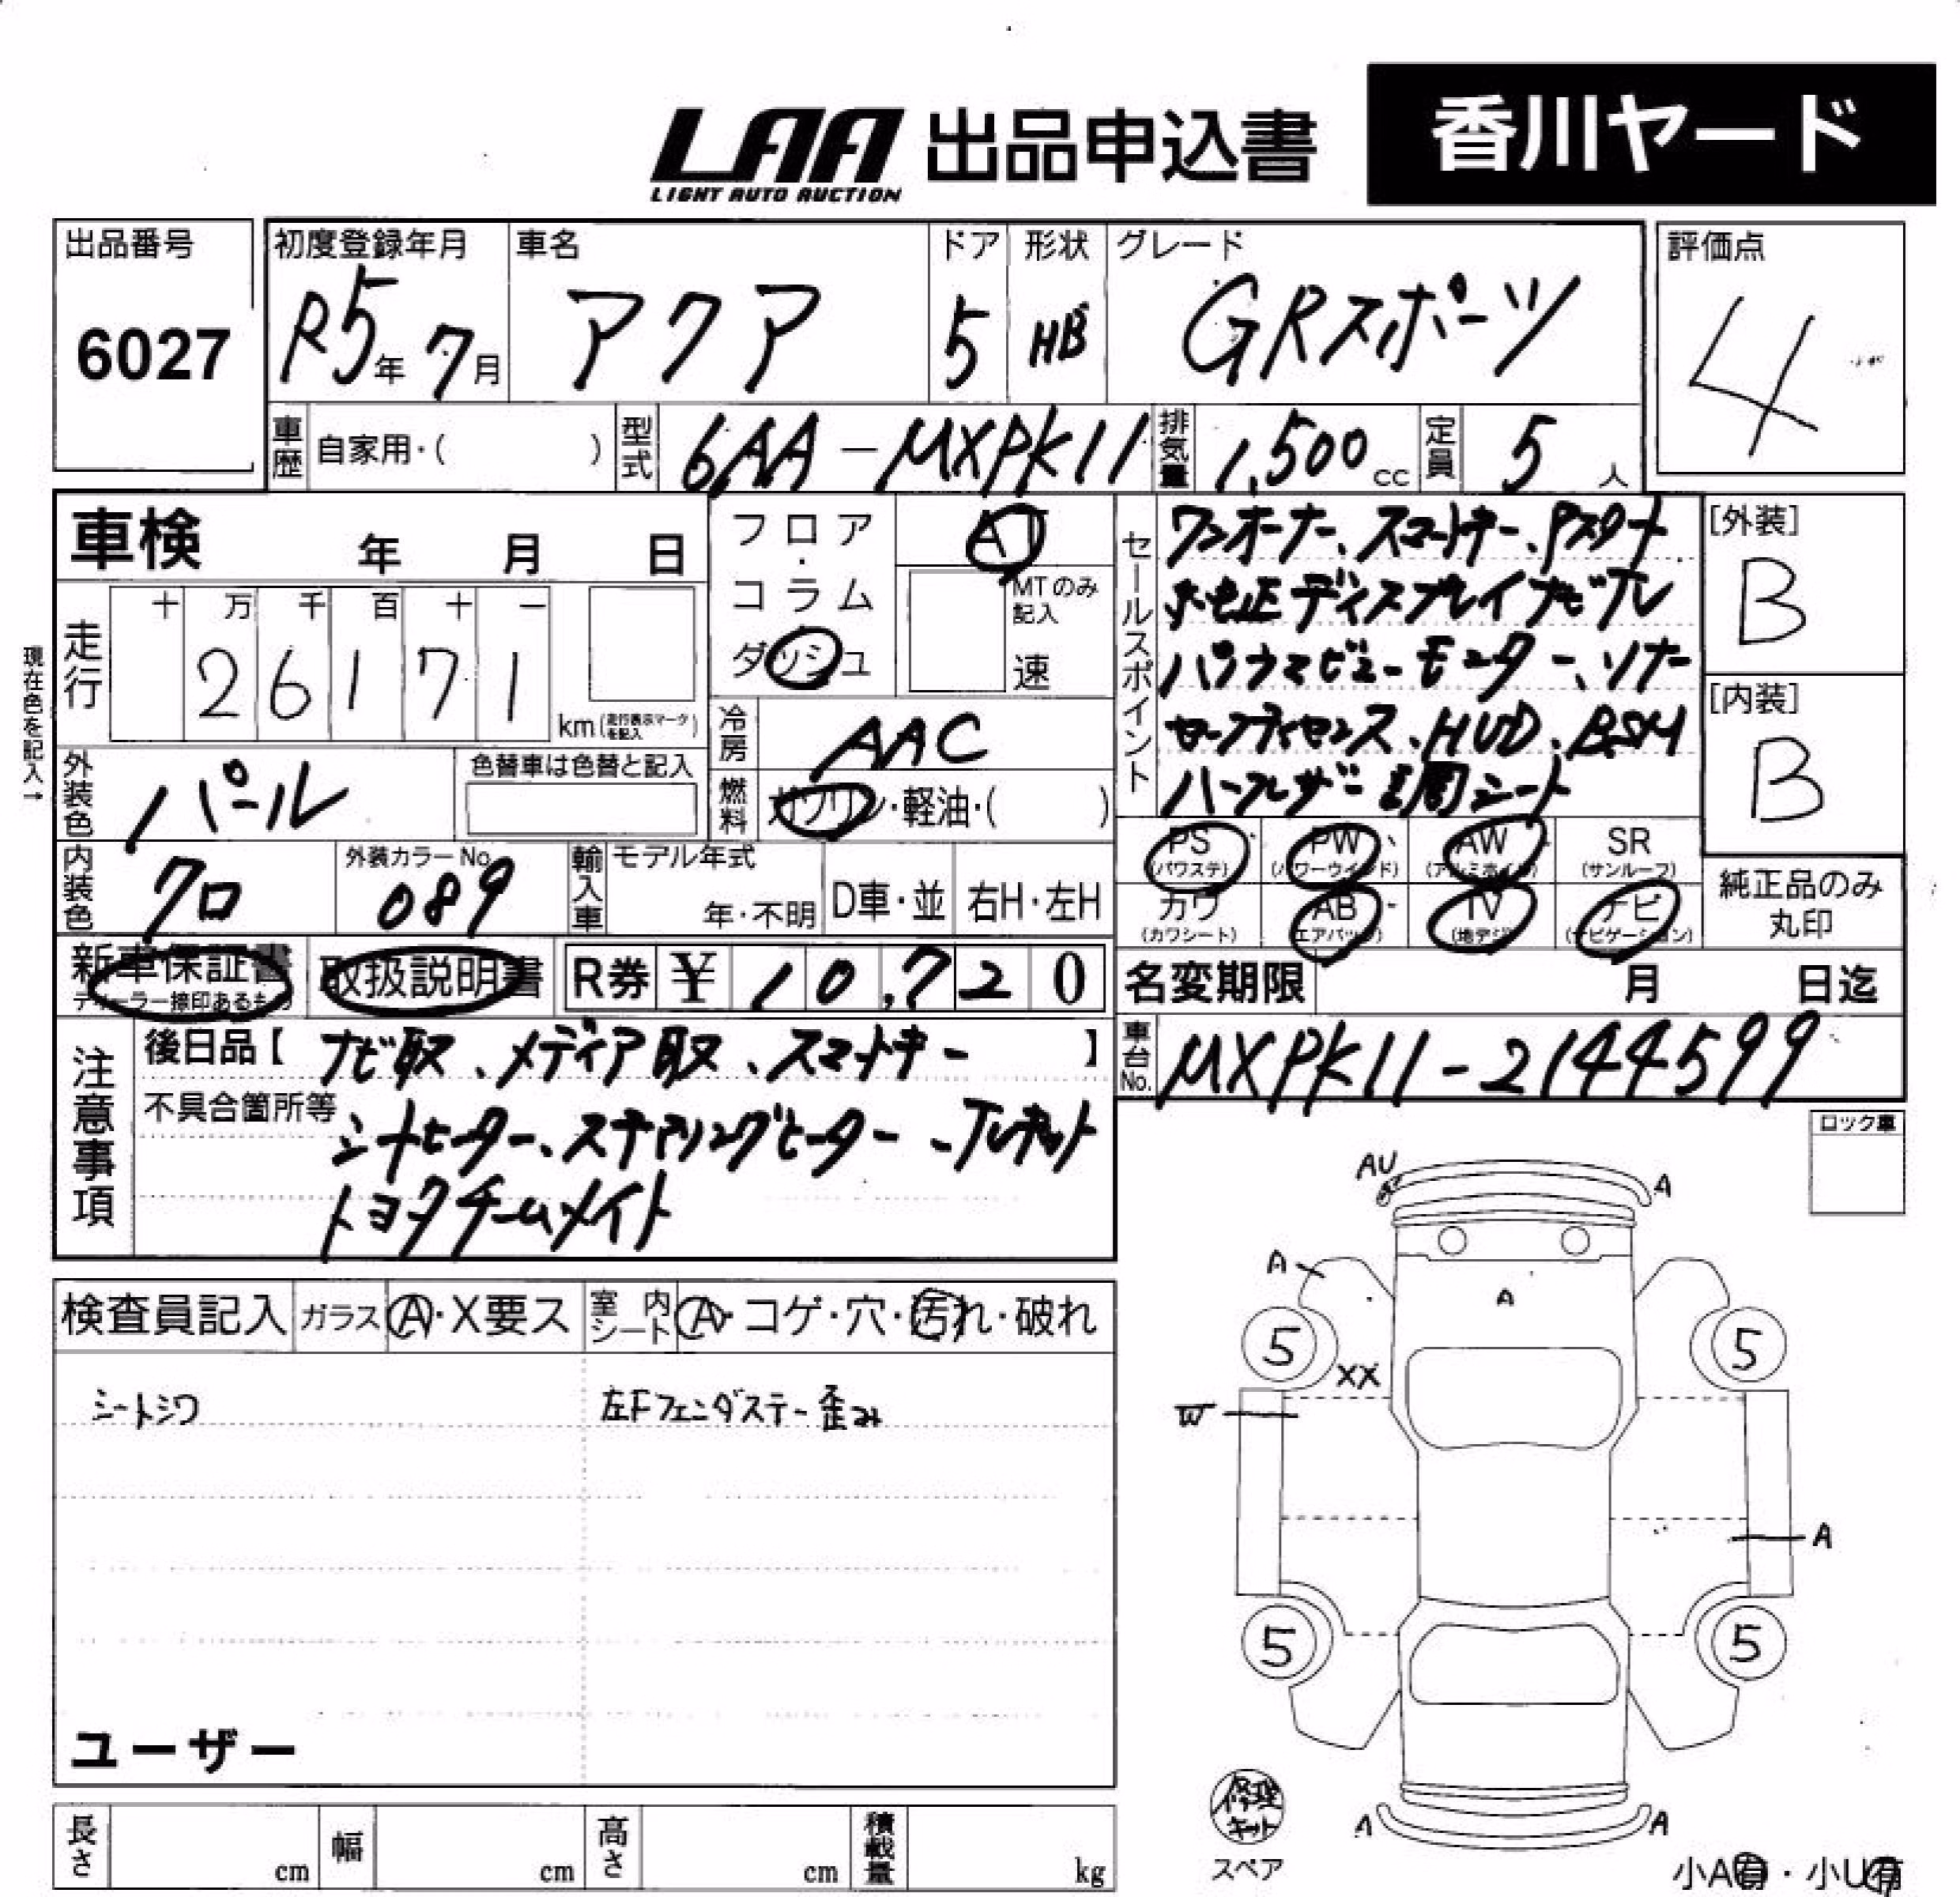 LAA 出品申込書 香川ヤード
LIGHT AUTO AUCTION
出品番号 初度登録年月 車名 ドア 形状 グレード 評価点
6027 R5年 7月 アクア 5 HB GRスポーツ 4
車歴 自家用・( ) 型式 6AA-MXPK11 排気量 1,500cc 定員 5人
車検 年 月 日
フロア・コラム ダッシュ
AT
MTのみ記入
速
現在色を記入→
走行 十 万 千 百 十 一
26171 km(走行表示マークを記入)
冷房 AAC
燃料 ガソリン・軽油・( )
外装色 パール 色替車は色替と記入
内装色 クロ 外装カラーNo. 089
輸入車 モデル年式 年・不明 D車・並 右H・左H
セールスポイント
ワンオーナー、スマートキー、Pスタート
純正ディスプレイナビTV
パノラマビューモニター、ソナー
セーフティセンス、HUD、BSM
ハーフレザー調シート
[外装] B
[内装] B
PS(パワステ) PW(パワーウインド) AW(アルミホイル) SR(サンルーフ)
カワ(カワシート) AB(エアバッグ) TV(地デジ) ナビ(ナビゲーション)
純正品のみ丸印
新車保証書 ディーラー捺印あるもの 取扱説明書 R券 ¥ 10,720
名変期限 月 日迄
車台No. MXPK11-2144599
注意事項
後日品【 ナビ取、メディア取、スマートキー 】
不具合箇所等
シートヒーター、ステアリングヒーター
トヨタチームメイト
ロック車
検査員記入 ガラス A・X要ス 室内シート A・コゲ・穴・汚れ・破れ
シートシワ 左Fフェンダステー歪み
ユーザー
長さ cm 幅 cm 高さ cm 積載量 kg
AU A
A A
5 5
XX
W
A
5 5
A A
修理キット
スペア
小A有・小U有